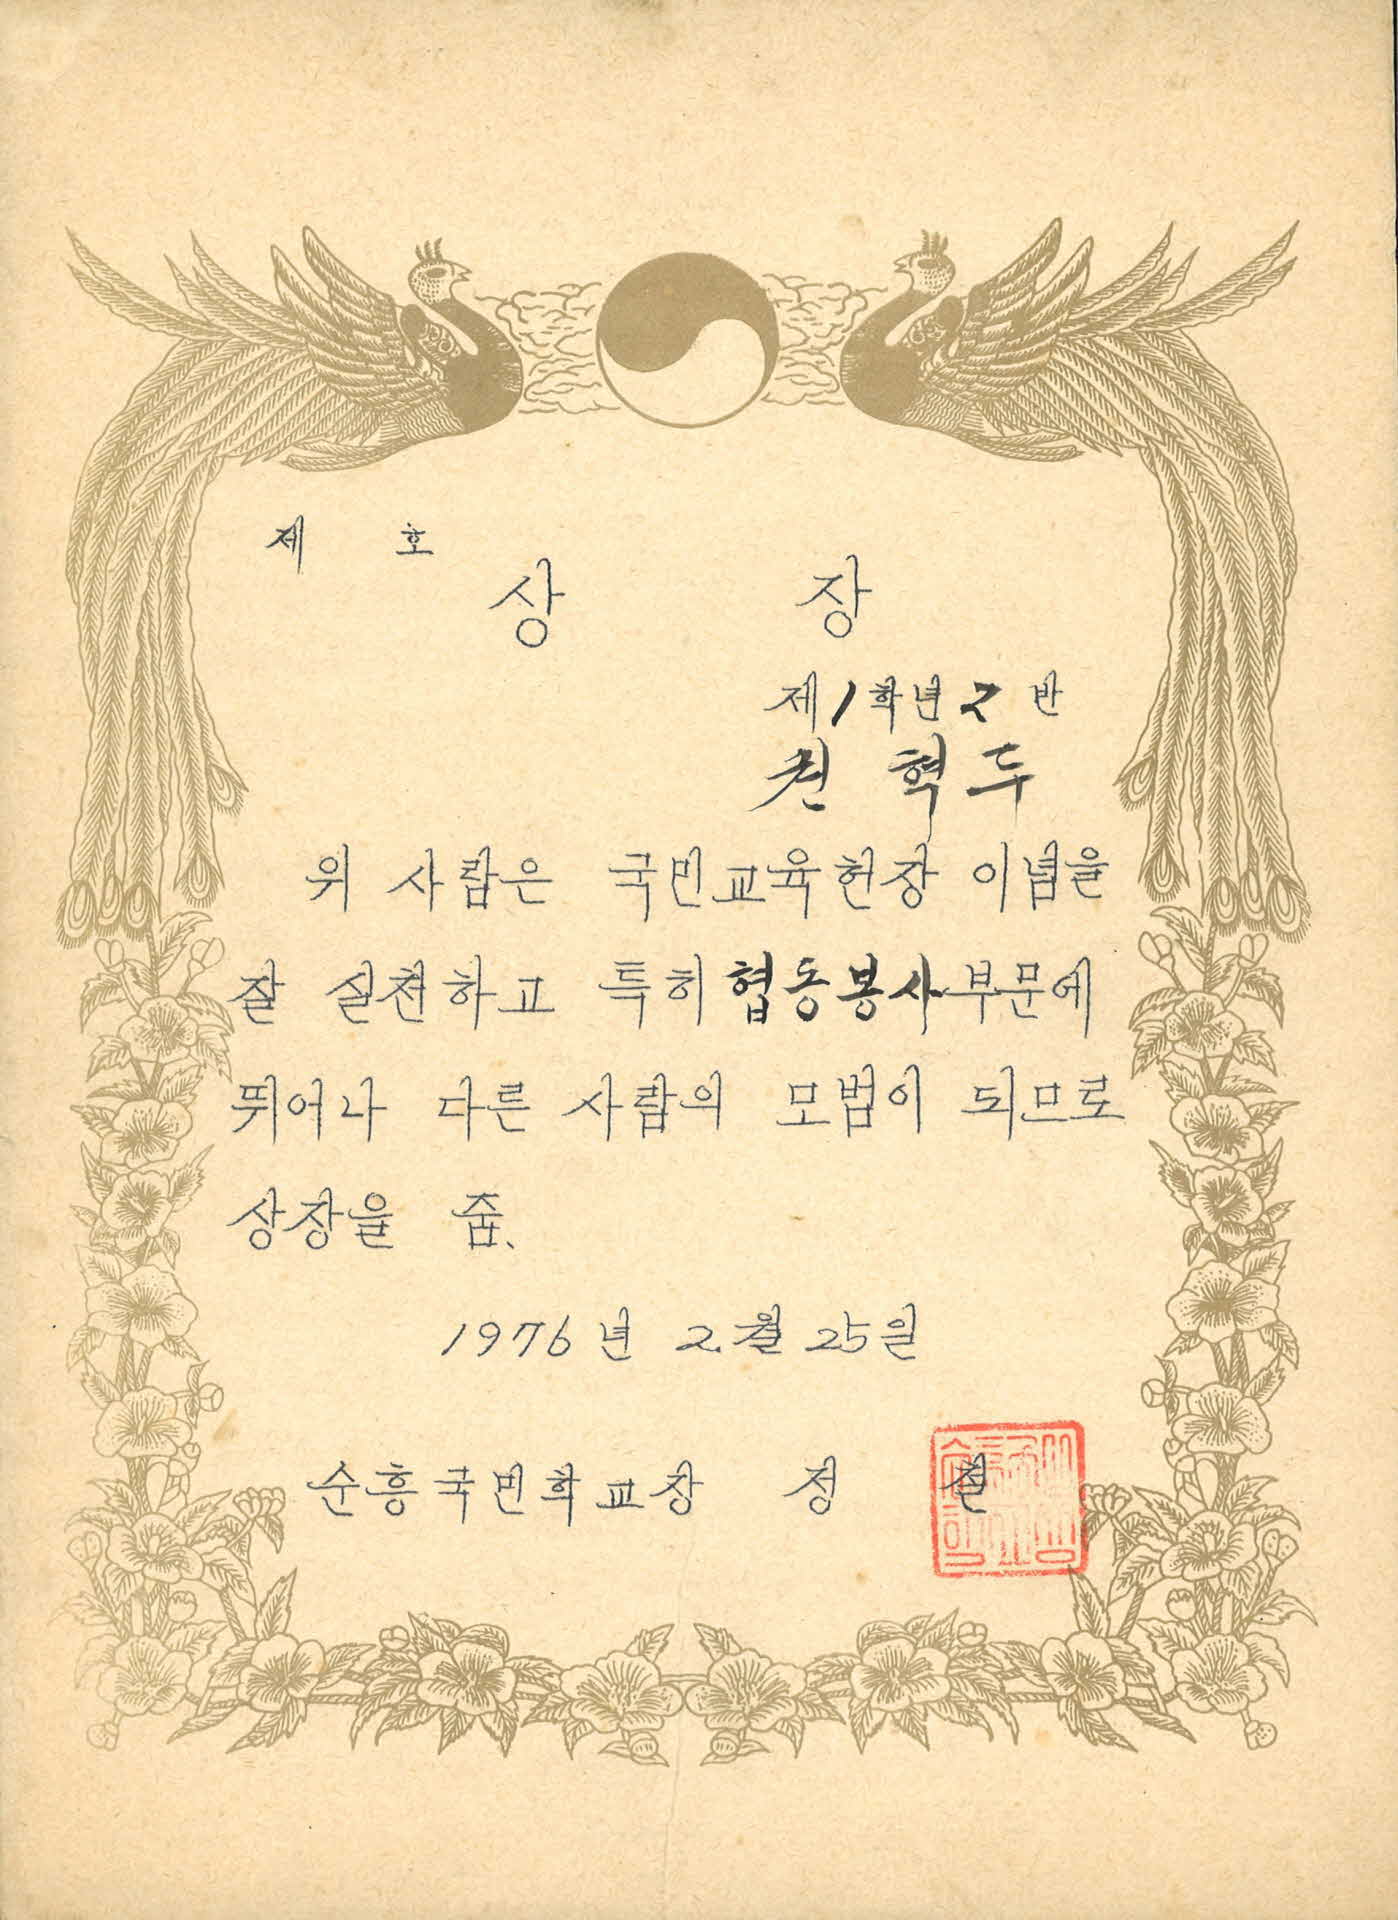 제 호
상 장
제1학년 2 반
권 혁 두
위 사람은 국민교육헌장 이념을
잘 실천하고 특히 협동봉사부문에
뛰어나 다른 사람의 모범이 되므로
상장을 줌.
1976년 2.월 25일
순흥국민학교장 정 철